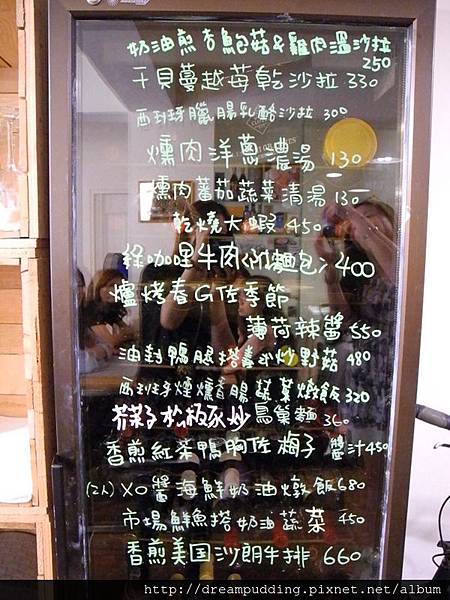 奶油煎杏鮑菇&雞肉溫沙拉
250
干貝蔓越莓乾沙拉 330
西班牙臘腸乳酪沙拉 300
燻肉洋蔥濃湯 130
燻肉蕃茄蔬菜清湯 130
乾燒大蝦 450
綠咖哩牛肉(附麵包) 400
爐烤春G佐季節
薄荷辣醬 550
油封鴨腿搭 炒野菇 480
西班牙煙燻香腸蔬菜燉飯 320
芥菜子松板豕炒鳥巢麵 360
香煎紅茶鴨胸佐梅子醬汁 450
(2人) XO醬海鮮奶油燉飯 680
市場鮮魚搭奶油蔬菜 450
香煎美国沙朗牛排 660
http://dreampudding.pixnet.net/album